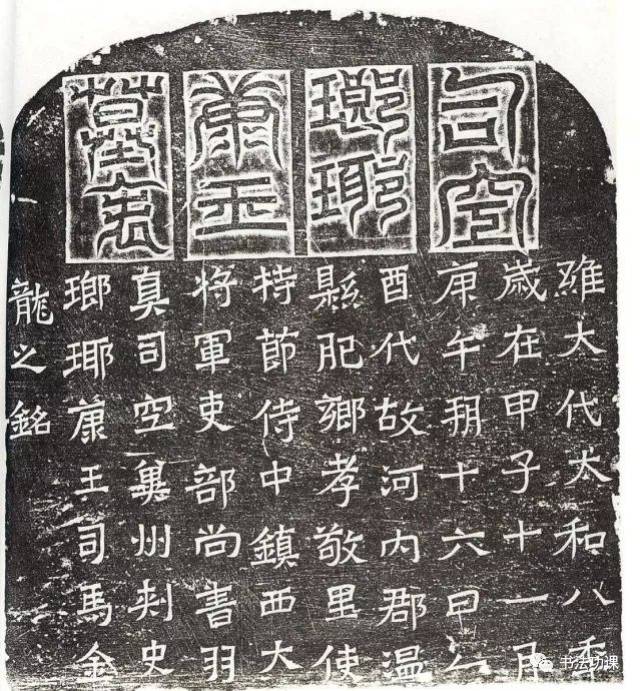 司空
瑯琊
康王
墓表
維大代太和八年
歲在甲子十一月
庚午朔十六日乙
酉代故河內郡溫
縣肥鄉孝敬里使
持節侍中鎮西大
將軍吏部尚書羽
真司空冀州刾史
瑯琊康王司馬金
龍之銘
书法功课